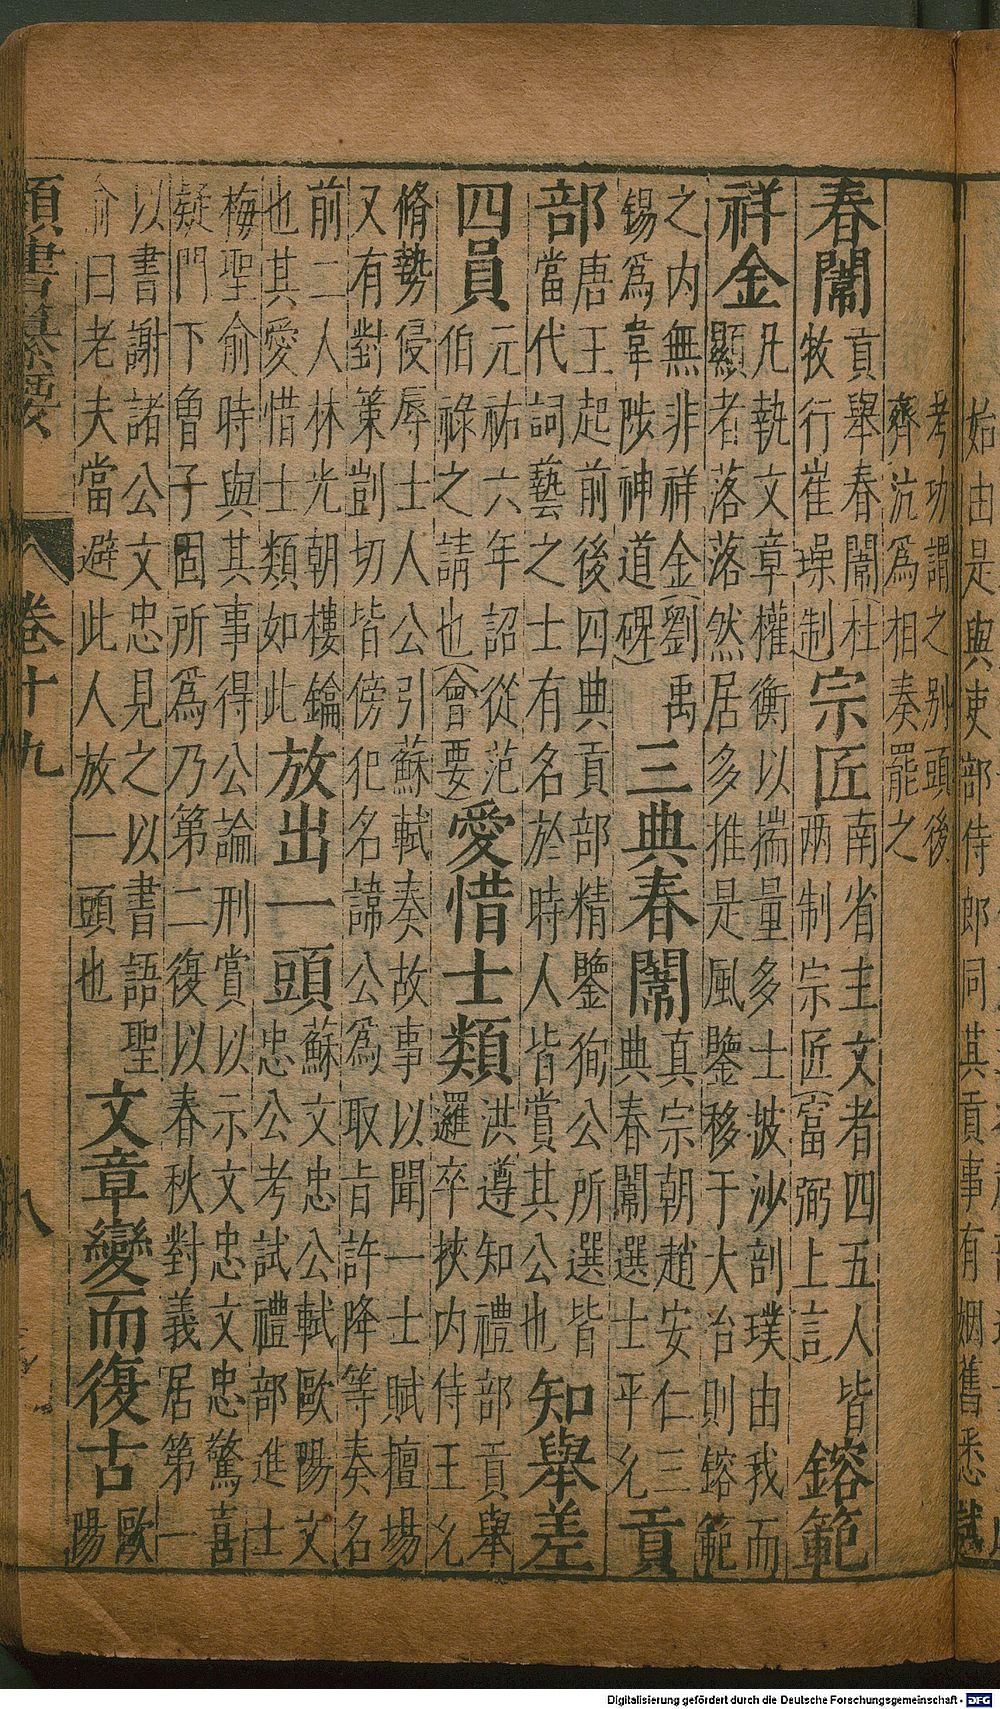 始由是與吏部侍郎同其貢事有姻舊悉試
考功謂之別頭後
齊沆爲相奏罷之
春闈 貢舉春闈(杜
牧行崔璪制) 宗匠 南省主文者四五人皆
兩制宗匠(富弼上言) 鎔範
祥金 凡執文章權衡以揣量多士披沙剖璞由我而
顯者落落然居多推是風鑒移于大冶則鎔範
之内無非祥金(劉禹
錫爲韋陟神道碑) 三典春闈 真宗朝趙安仁三
典春闈選士平允 貢
部 唐王起前後四典貢部精鑒狥公所選皆
當代詞藝之士有名於時人皆賞其公也 知舉差
四員 元祐六年詔從范
伯祿之請也(會要) 愛惜士類 洪遵知禮部貢舉
邏卒挾内侍王允
脩勢侵辱士人公引蘇軾奏故事以聞一士賦擅場
又有對策剴切皆傍犯名諱公爲取旨許降等奏名
前二人林光朝樓鑰
也其愛惜士類如此 放出一頭 蘇文忠公軾歐陽文
忠公考試禮部進士
梅聖俞時與其事得公論刑賞以示文忠文忠驚喜
疑門下曾子固所爲乃第二復以春秋對義居第一
以書謝諸公文忠見之以書語聖
俞曰老夫當避此人放一頭也 文章變而復古 歐
陽
類書纂要 卷十九 八
Digitalisierung gefördert durch die Deutsche Forschungsgemeinschaft - DFG